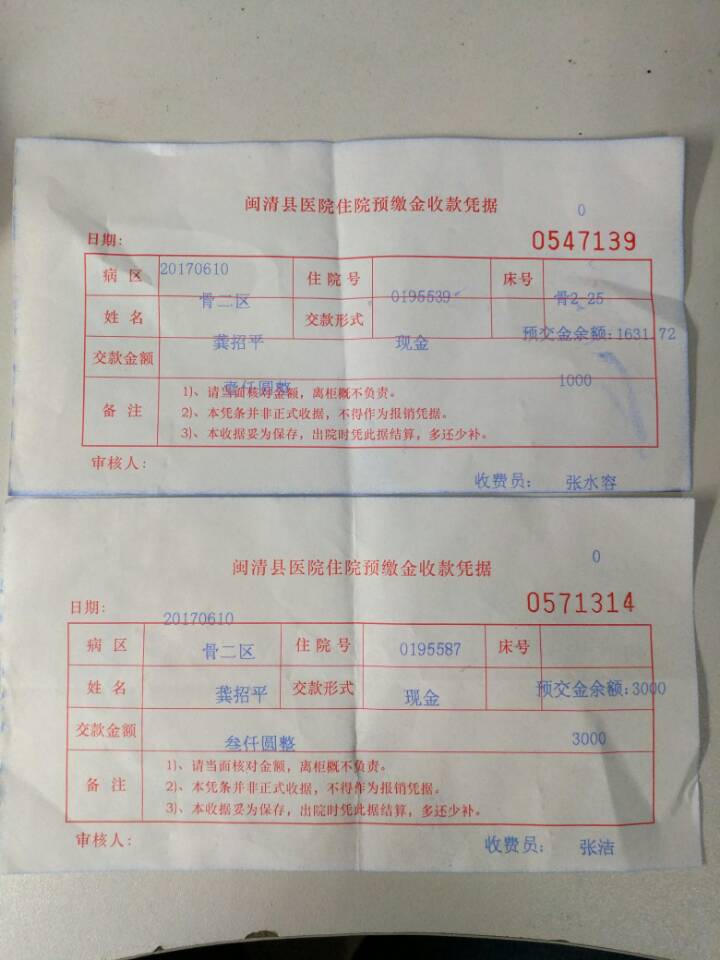 闽清县医院住院预缴金收款凭据
0
日期:
0547139
20170610
病区 骨二区 住院号 0195539 床号 骨2_25
姓名 龚招平 交款形式 现金 预交金余额:1631.72
交款金额 壹仟圆整 1000
备注
1)、请当面核对金额，离柜概不负责。
2)、本凭条并非正式收据，不得作为报销凭据。
3)、本收据妥为保存，出院时凭此据结算，多还少补。
审核人:
收费员: 张水容
闽清县医院住院预缴金收款凭据
0
日期:
0571314
20170610
病区 骨二区 住院号 0195587 床号
姓名 龚招平 交款形式 现金 预交金余额:3000
交款金额 叁仟圆整 3000
备注
1)、请当面核对金额，离柜概不负责。
2)、本凭条并非正式收据，不得作为报销凭据。
3)、本收据妥为保存，出院时凭此据结算，多还少补。
审核人:
收费员: 张洁